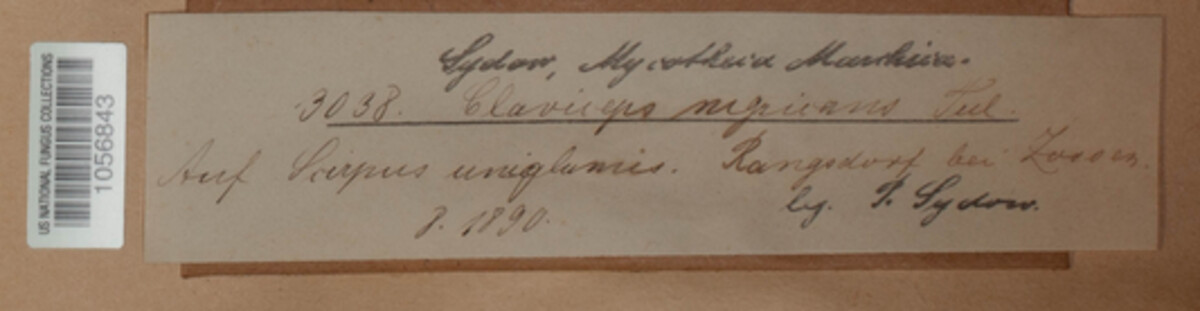 US NATIONAL FUNGUS COLLECTIONS
1056843
Sydow, Mycotheca Marchica.
3038. Claviceps nigricans Tul.
Auf Scirpus uniglumis. Rangsdorf bei Zossen.
8. 1890.
leg. P. Sydow.